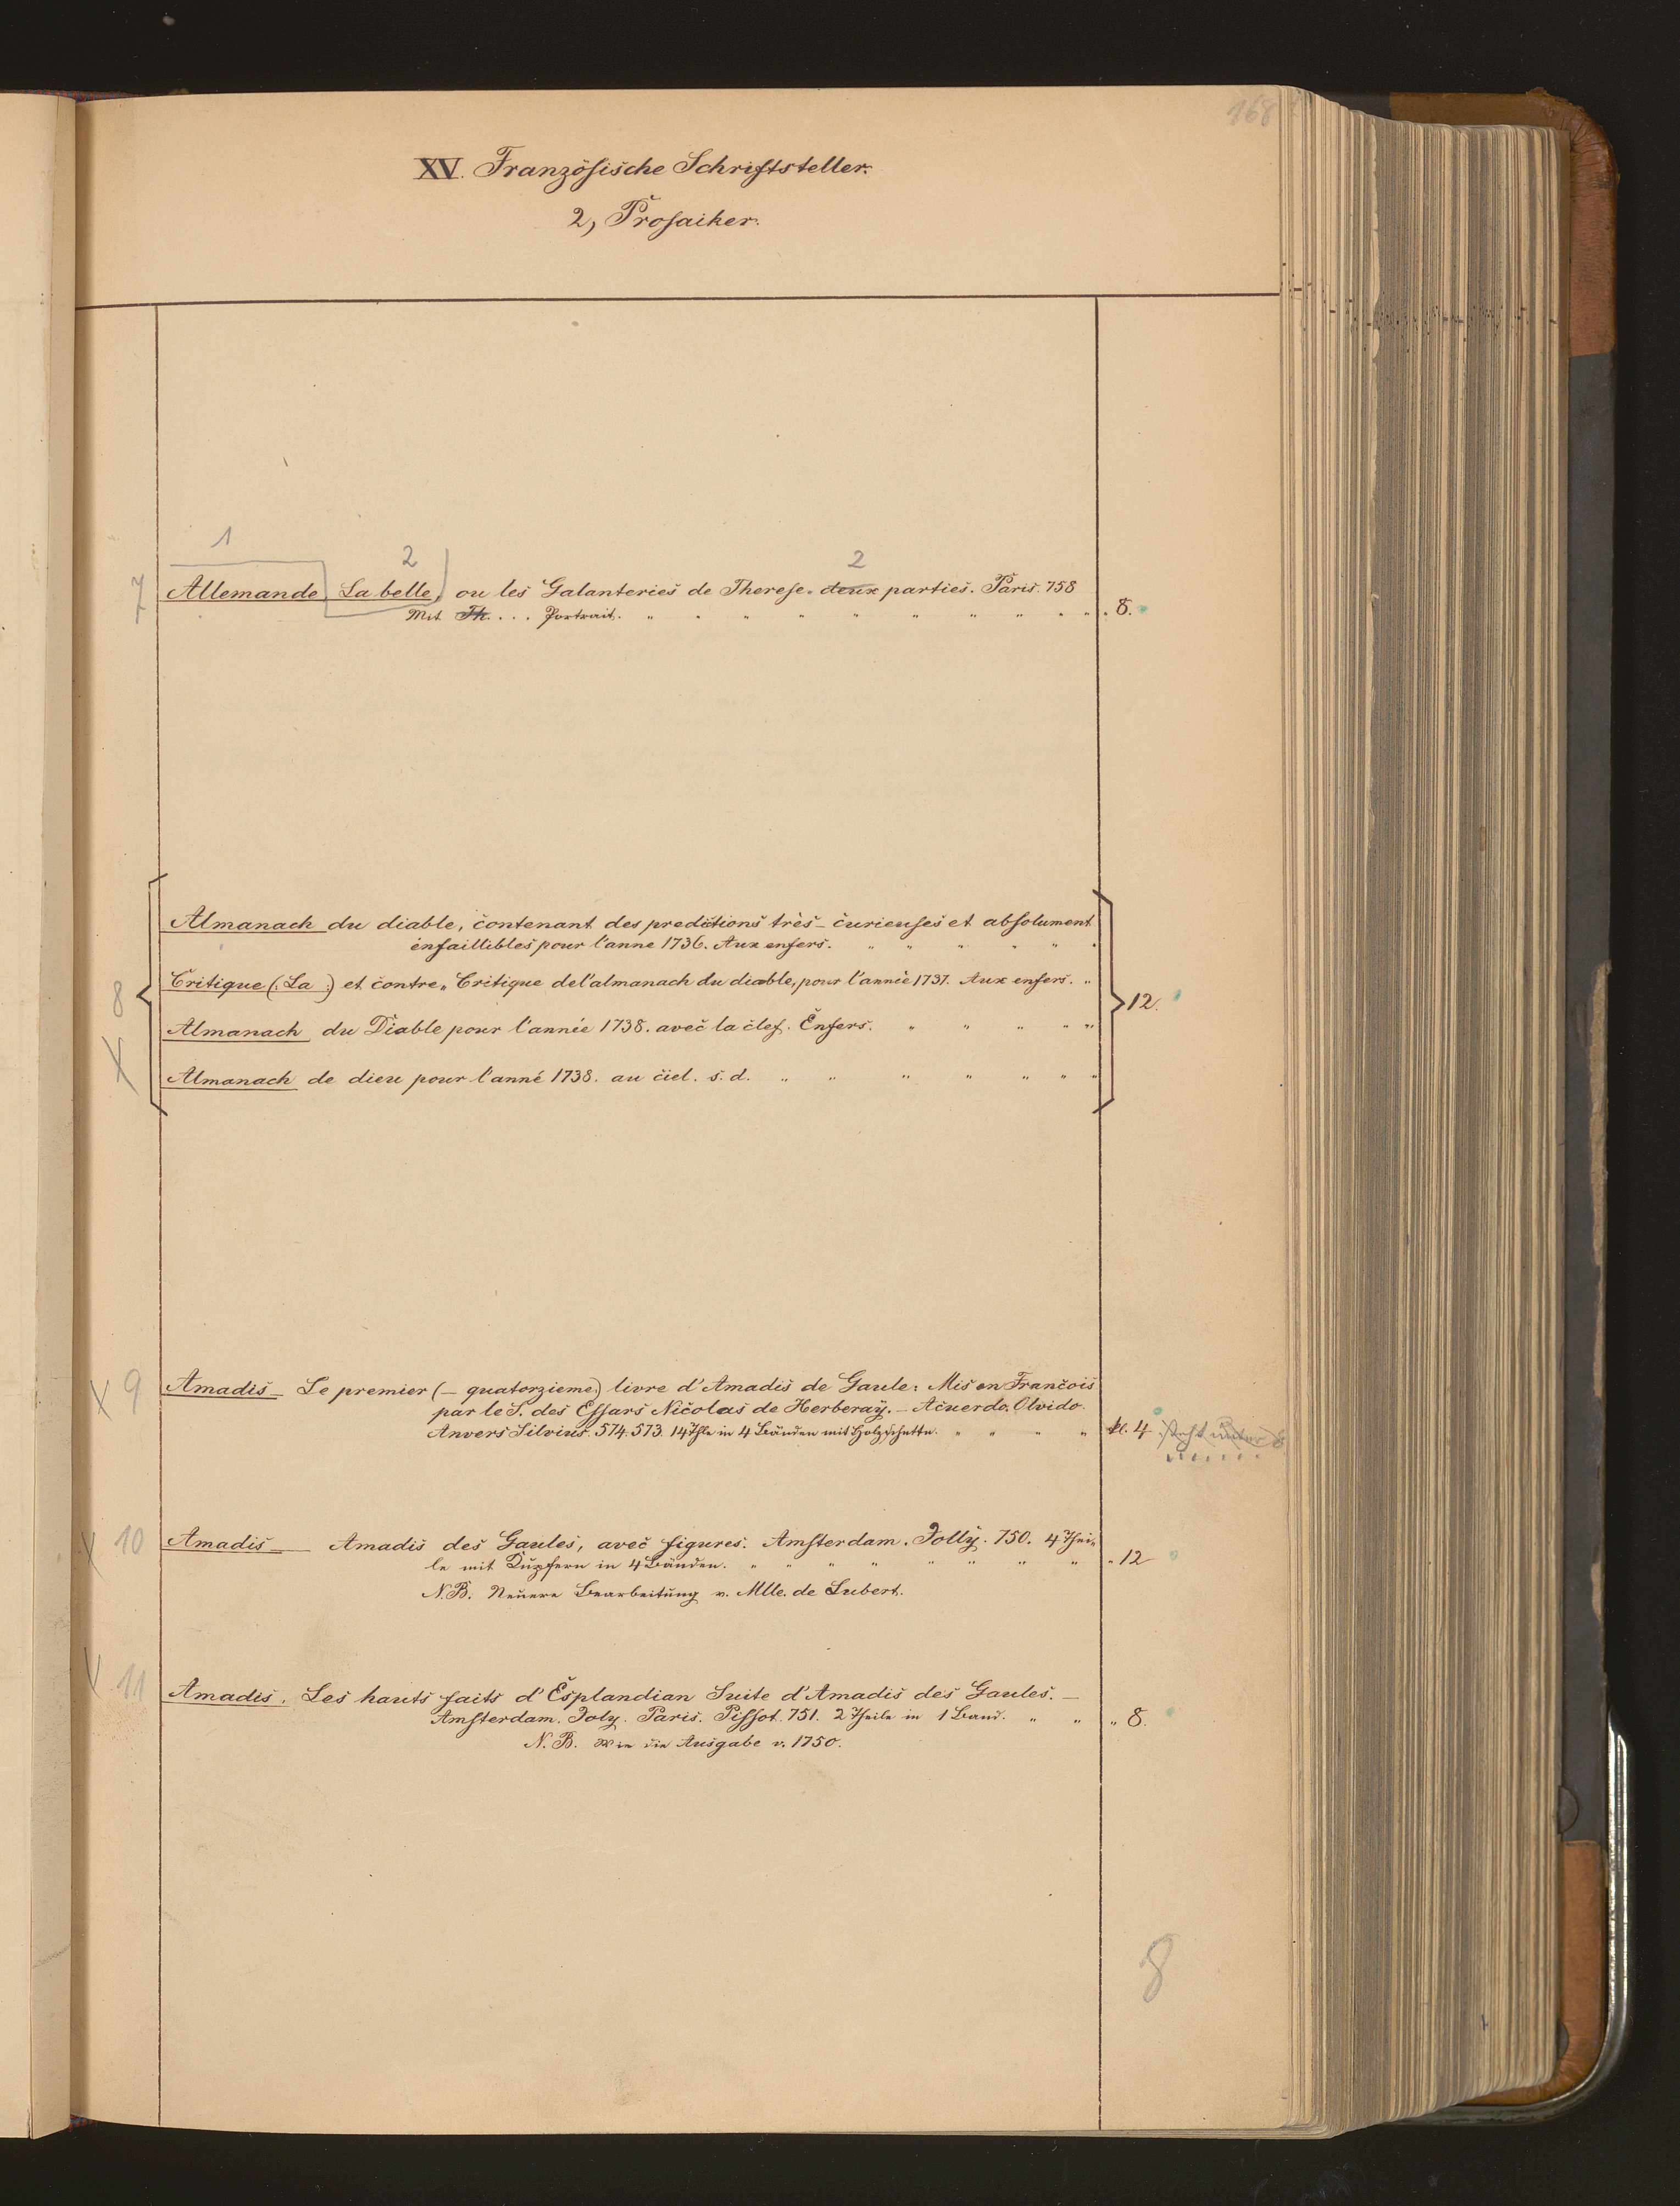 168
XV. Französische Schriftsteller.
2, Prosaiker.
1 2 2
7 Allemande La belle, ou les Galanteries de Therese. deux parties. Paris. 758
Mit Th. . . . Portrait. " " " " " " " " " " . 8.
Almanach du diable, contenant des predictions très-curieuses et absolument
infaillibles pour l'anne 1736. Aux enfers. " " " " " "
Critique (: La :) et contre„ Critique de l'almanach du diable, pour l'année 1737. Aux enfers. "
8 12.
Almanach du Diable pour l'année 1738. avec la clef. Enfers. " " " " "
X
Almanach de dieu pour l'anné 1738. au ciel. s. d. " " " " " " "
X 9 Amadis_ Le premier (_ quatorzieme) livre d'Amadis de Gaule: Mis en François
par le S. des Essars Nicolas de Herberaÿ. _ Acuerdo. Olvido.
Anvers Silvius. 574. 573. 14 Thle in 4 Bänden mit Holzschnitte. " " " " kl. 4 steht unter 8
X 10 Amadis_ Amadis des Gaules, avec figures. Amsterdam. Jolly. 750. 4 Thei„
le mit Kupfern in 4 Bänden. " " " " " " " " " 12
N.B. Neuere Bearbeitung v. Mlle. de Lubert.
X 11 Amadis. Les hauts faits d'Esplandian Suite d'Amadis des Gaules. _
Amsterdam. Joly. Paris. Pissot. 751. 2 Theile in 1 Band. " " " 8.
N. B. Wie die Ausgabe v. 1750.
8